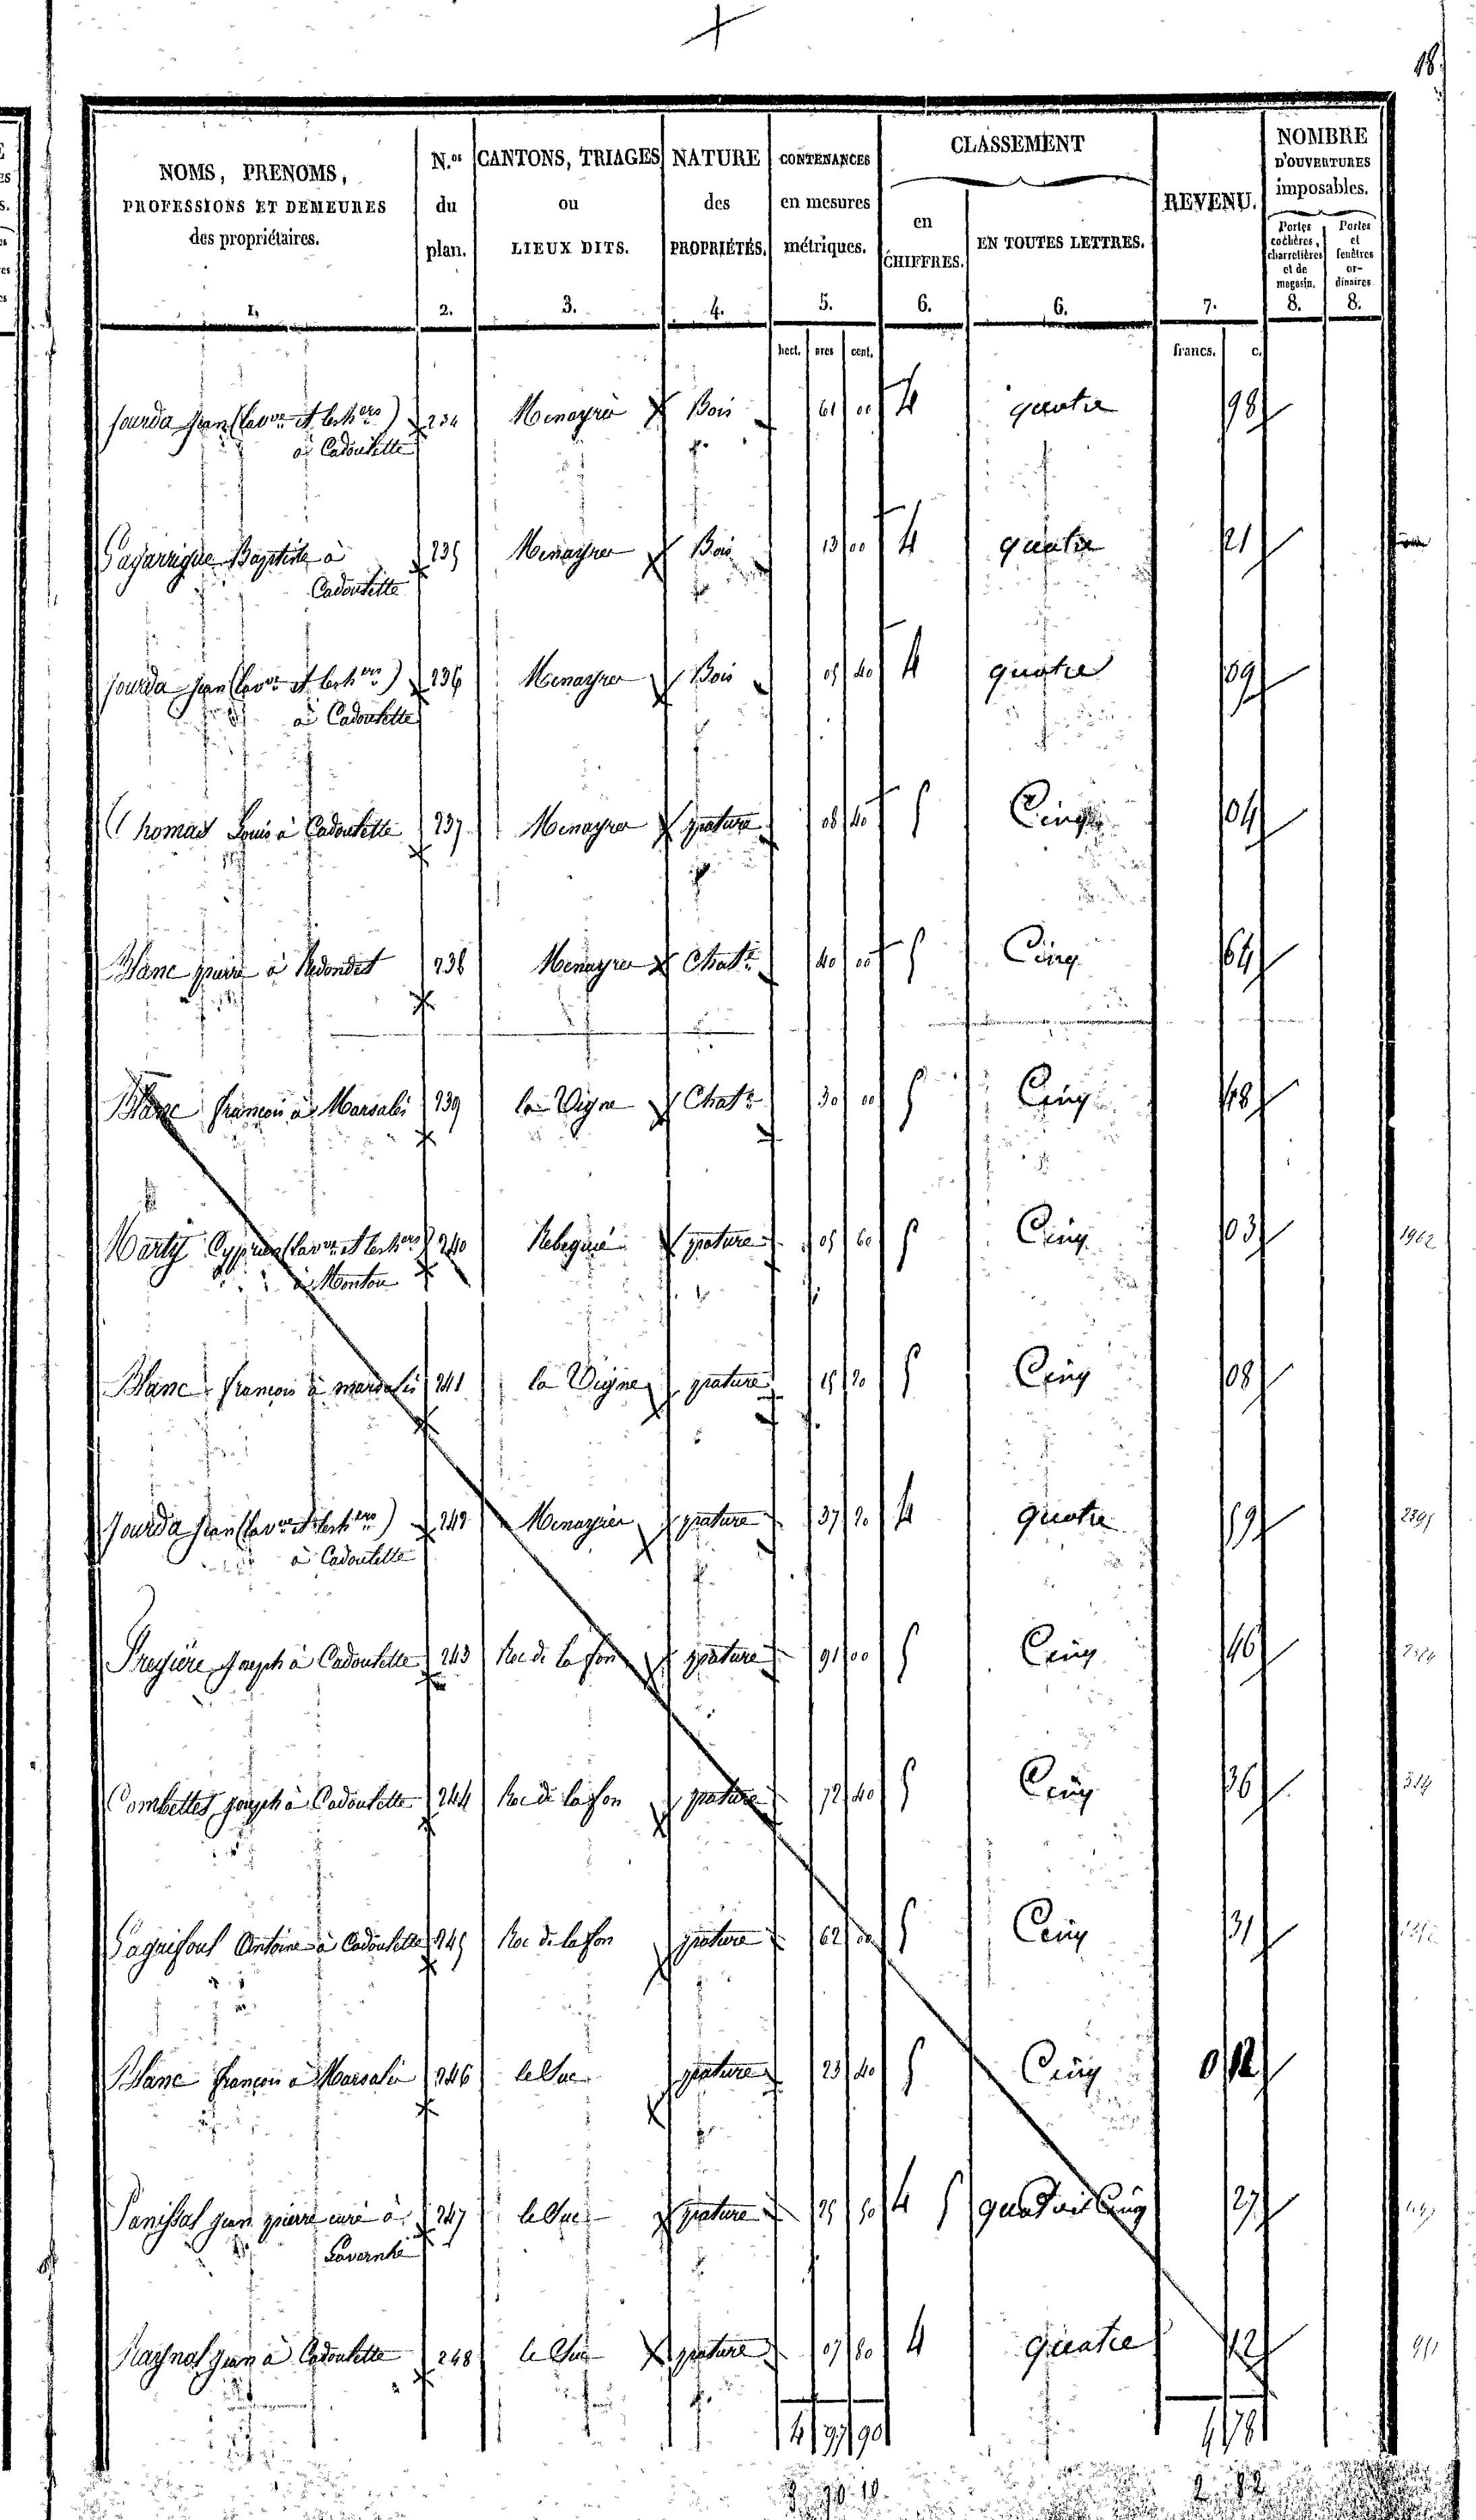 18.
NOMS, PRENOMS, PROFESSIONS ET DEMEURES des propriétaires. 1.
N.os du plan. 2.
CANTONS, TRIAGES ou LIEUX DITS. 3.
NATURE des PROPRIÉTÉS. 4.
CONTENANCES en mesures métriques. 5.
CLASSEMENT
en CHIFFRES. 6.
EN TOUTES LETTRES. 6.
REVENU. 7.
NOMBRE D'OUVERTURES imposables.
Portes cochères, charretières et de magasin. 8.
Portes et fenêtres ordinaires 8.
hect. ares cent. francs. c.
Jourda Jean (la ve et les hers) 234 Menayrié Bois 61 00 4 quatre 98
à Cadoulette
Lagarrigue Baptiste à 235 Menayrer Bois 13 00 4 quatre 21
Cadoulette
Jourda Jean (la ve et les hers) 236 Menayrer Bois 05 40 4 quatre 09
à Cadoulette
Thomas Louis à Cadoulette 237 Menayrer pature 08 40 5 Cinq 04
Blanc pierre à Redondet 238 Menayrer Chatr 40 00 5 Cinq 64
Blanc françois à Marsalès 239 la Vigne Chatr 30 00 5 Cinq 48
Marty Cyprien (la ve et les hers) 240 pature 05 60 5 Cinq 03 1962
à Montou
Blanc françois à marsalès 241 la Vigne pature 15 20 5 Cinq 08
Jourda Jean (la ve et les hers) 242 Menayrier pature 37 20 4 quatre 59 2395
à Cadoulette
Joseph à Cadoulette 243 Roc de la fon pature 91 00 5 Cinq 46
Combettes joseph à Cadoulette 244 Roc de la fon pature 72 40 5 Cinq 36 319
Antoine à Cadoulette 245 Roc de la fon pature 62 00 5 Cinq 31
Blanc françois à Marsalès 246 le Suc pature 23 40 5 Cinq 0 12
Panissal jean pierre curé à 247 le Suc pature 25 50 4 5 quatre Cinq 27
Lavernhe
Raynal jean à Cadoulette 248 le Suc pature 07 80 4 quatre 12
4 97 90 4 78